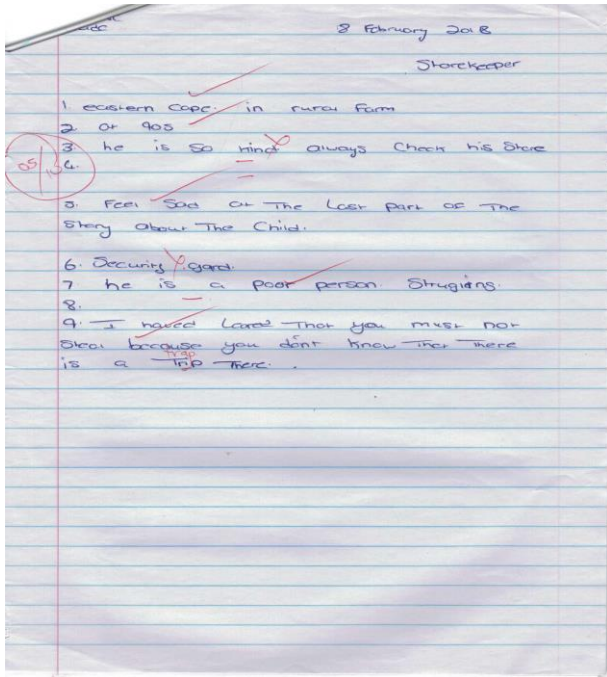 8 February 2018
Storekeeper
1. eastern Cape. in rural farm
2 at 90s
3 he is so kind always Check his Store
4.
05/10
5. Feel Sad at The Last part of The
Story about The Child.
6. Security gard.
7 he is a poor person. Strugling.
8.
9. I haved Lared That you must not
Steal because you don't know That There
trap
is a Trip There.